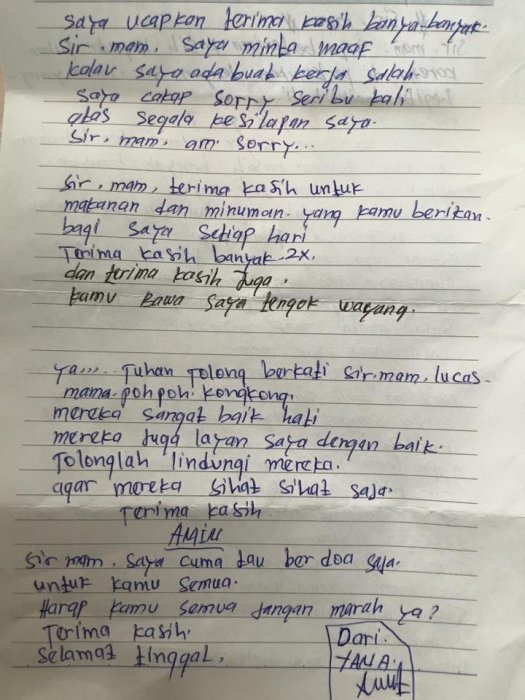 saya ucapkan terima kasih banya-banyak.
Sir. mam, saya minta maaf
kalau saya ada buat kerja salah.
saya cakap sorry seribu kali
atas segala kesilapan saya.
Sir, mam, am sorry...
Sir, mam, terima kasih untuk
makanan dan minuman yang kamu berikan.
bagi saya setiap hari
Terima kasih banyak-2x.
dan terima kasih juga.
kamu bawa saya tengok wayang.
ya,,,.. Tuhan Tolong berkati Sir.mam, lucas-
mama. poh poh. kongkong.
mereka sangat baik hati
mereka juga layan saya dengan baik.
Tolonglah lindungi mereka.
agar mereka sihat sihat saja.
Terima kasih
AMIN
Sir mam, saya cuma tau ber doa saja.
untuk kamu semua.
Harap kamu semua jangan marah ya?
Terima kasih.
Selamat tinggal.
Dari.
YANA.